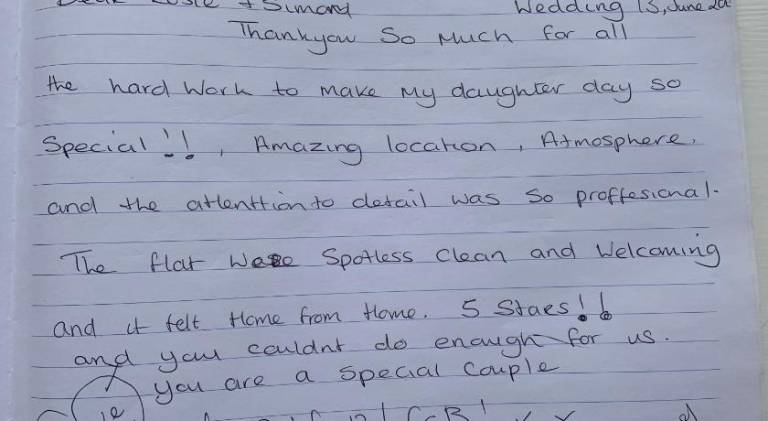 + Simond Wedding 13, June 20
Thankyou So Much for all
the hard Work to make My daughter day so
Special!!, Amazing location, Atmosphere.
and the attenttion to detail was so proffesional.
The flat were Spotless Clean and Welcoming
and it felt Home from Home. 5 Stars!!
and you couldnt do enough for us.
you are a Special Couple